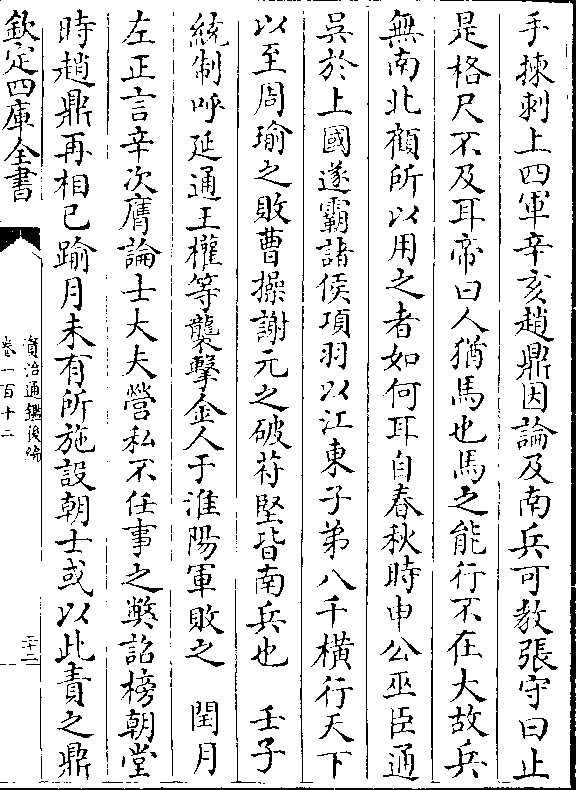 手揀刺上四軍辛亥趙鼎因論及南兵可教張守曰止
是格尺不及耳帝曰人猶馬也馬之能行不在大故兵
無南北顧所以用之者如何耳自春秋時申公巫臣通
吳於上國遂霸諸侯項羽以江東子弟八千横行天下
以至周瑜之敗曹操謝元之破苻堅皆南兵也　壬子
統制呼延通王權等襲擊金人于淮陽軍敗之　閏月
左正言辛次膺論士大夫營私不任事之弊詔榜朝堂
時趙鼎再相已踰月未有所施設朝士或以此責之鼎
欽定四庫全書
資治通鑑後編
卷一百十二
三十二